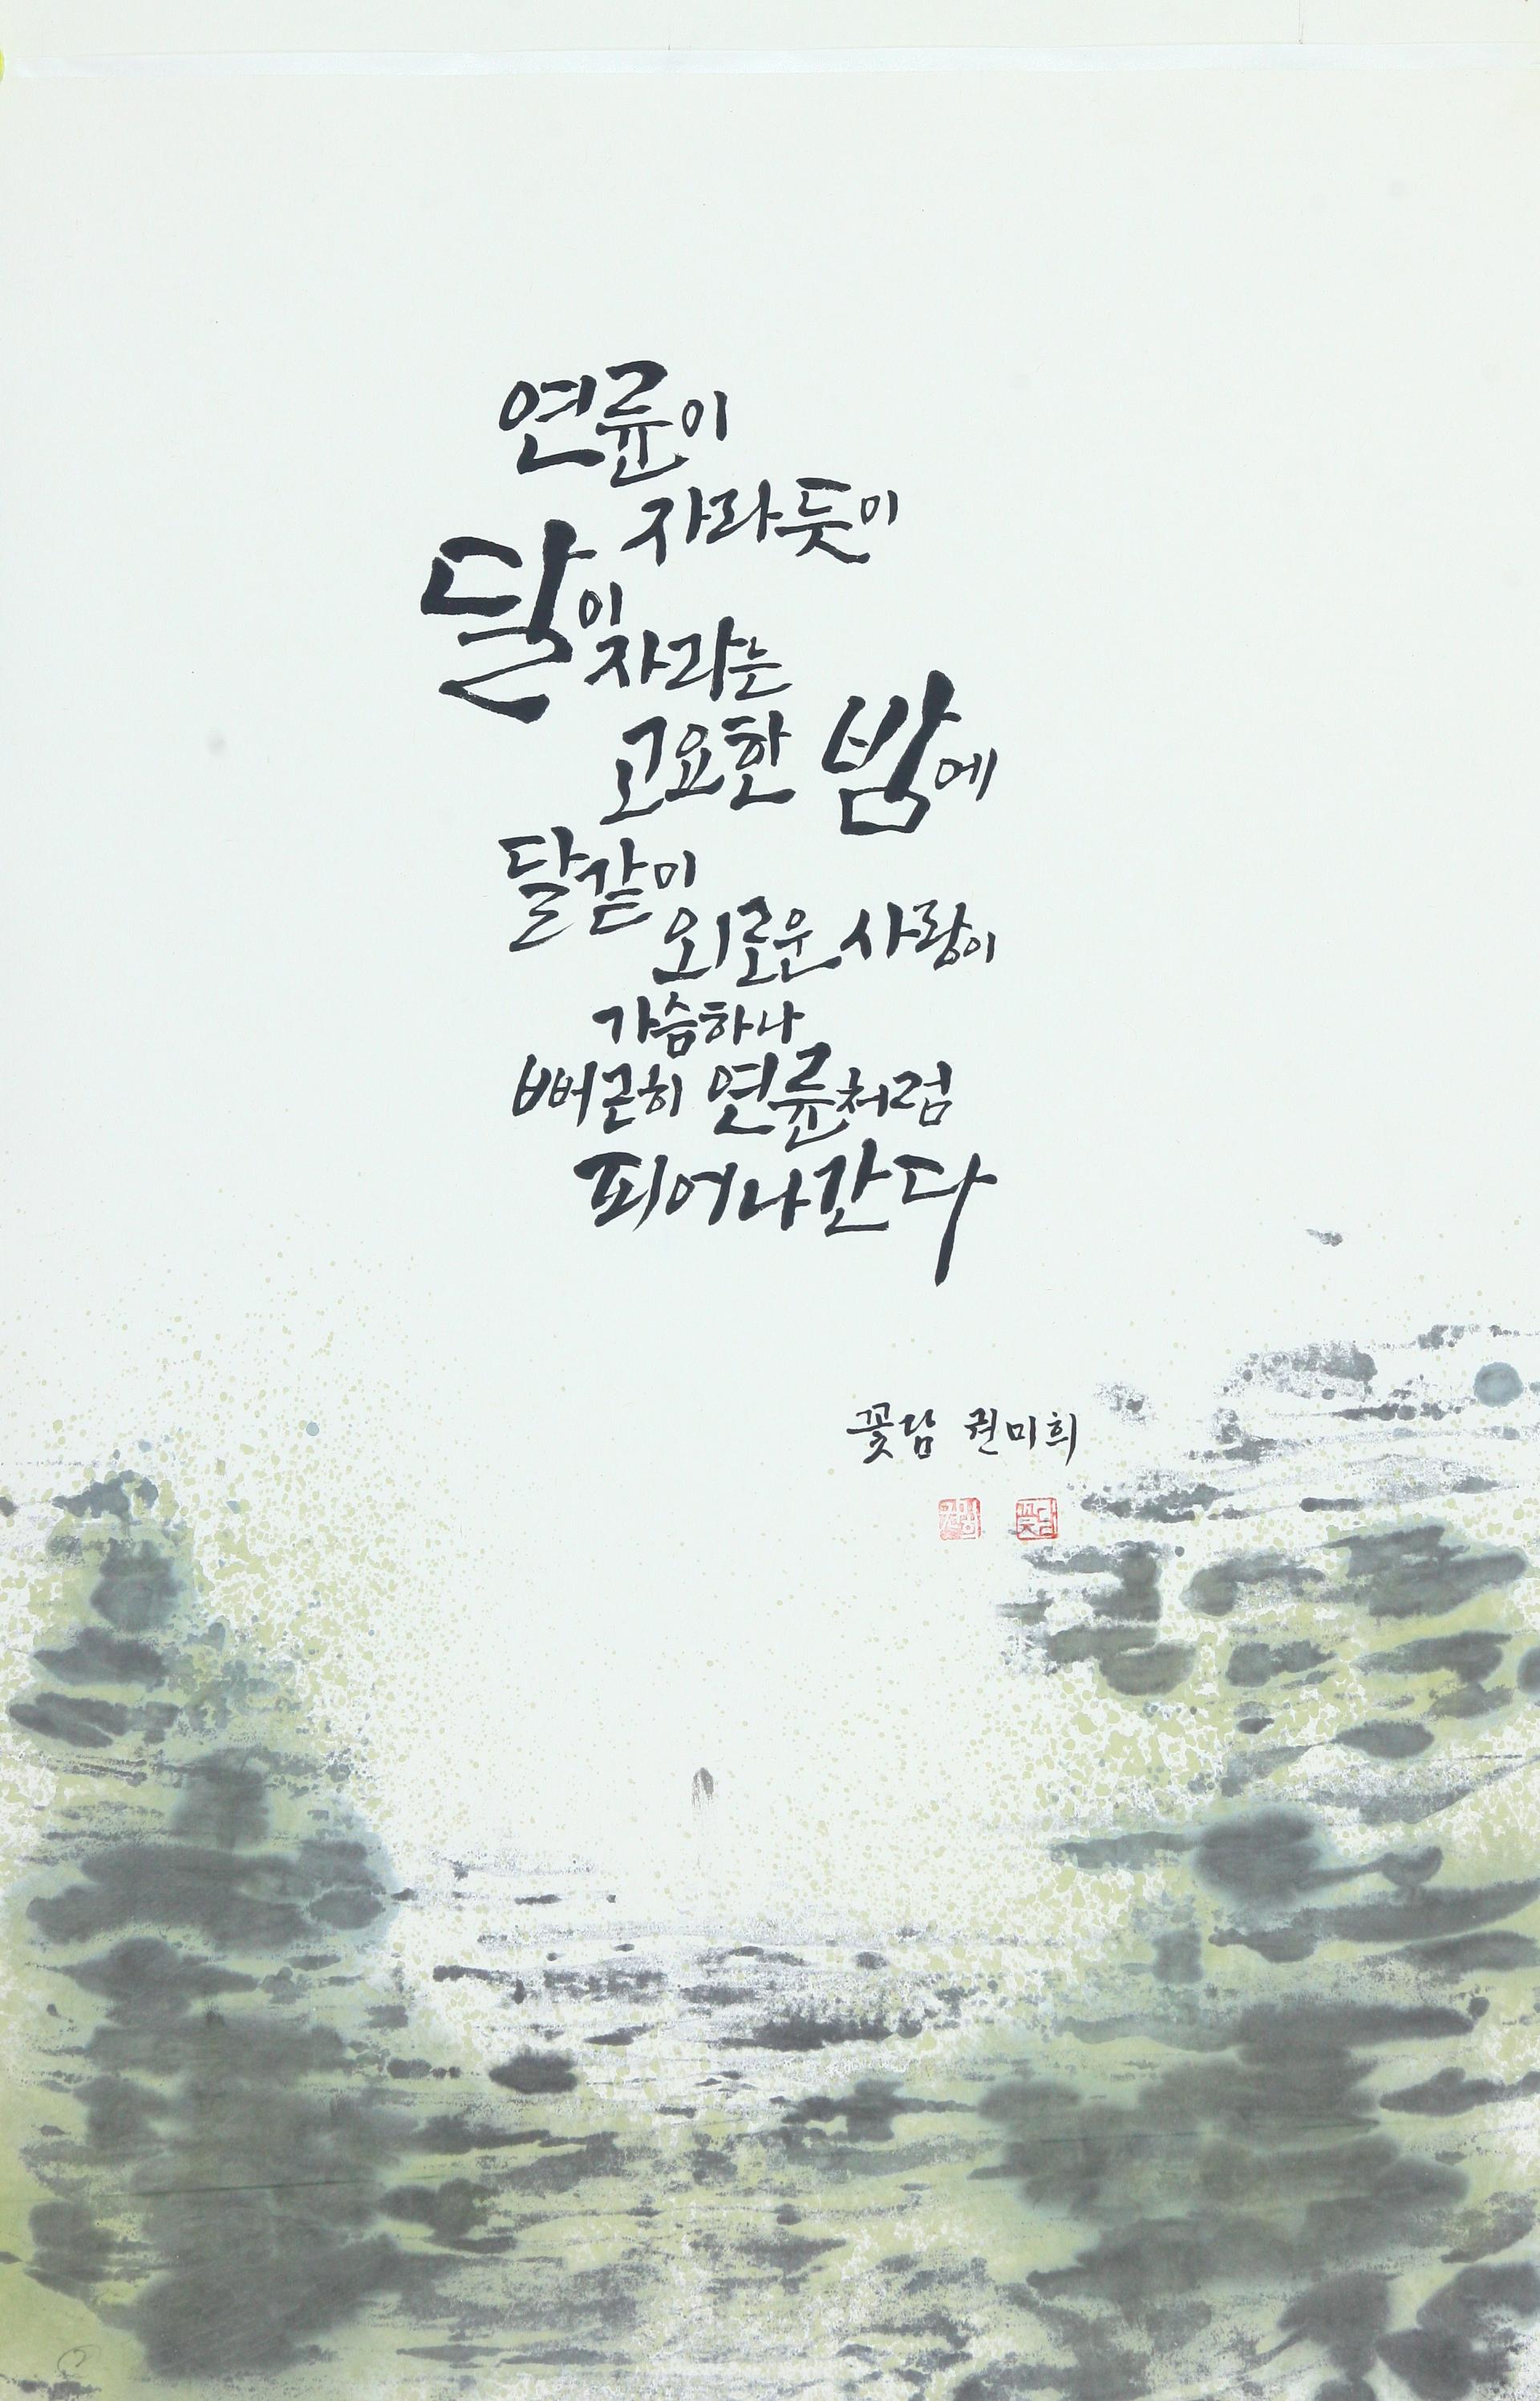 연륜이
자라듯이
달이 자라는
고요한 밤에
달같이
외로운 사랑이
가슴하나
뻐근히 연륜처럼
피어나간다
꽃담 권미희
꽃담